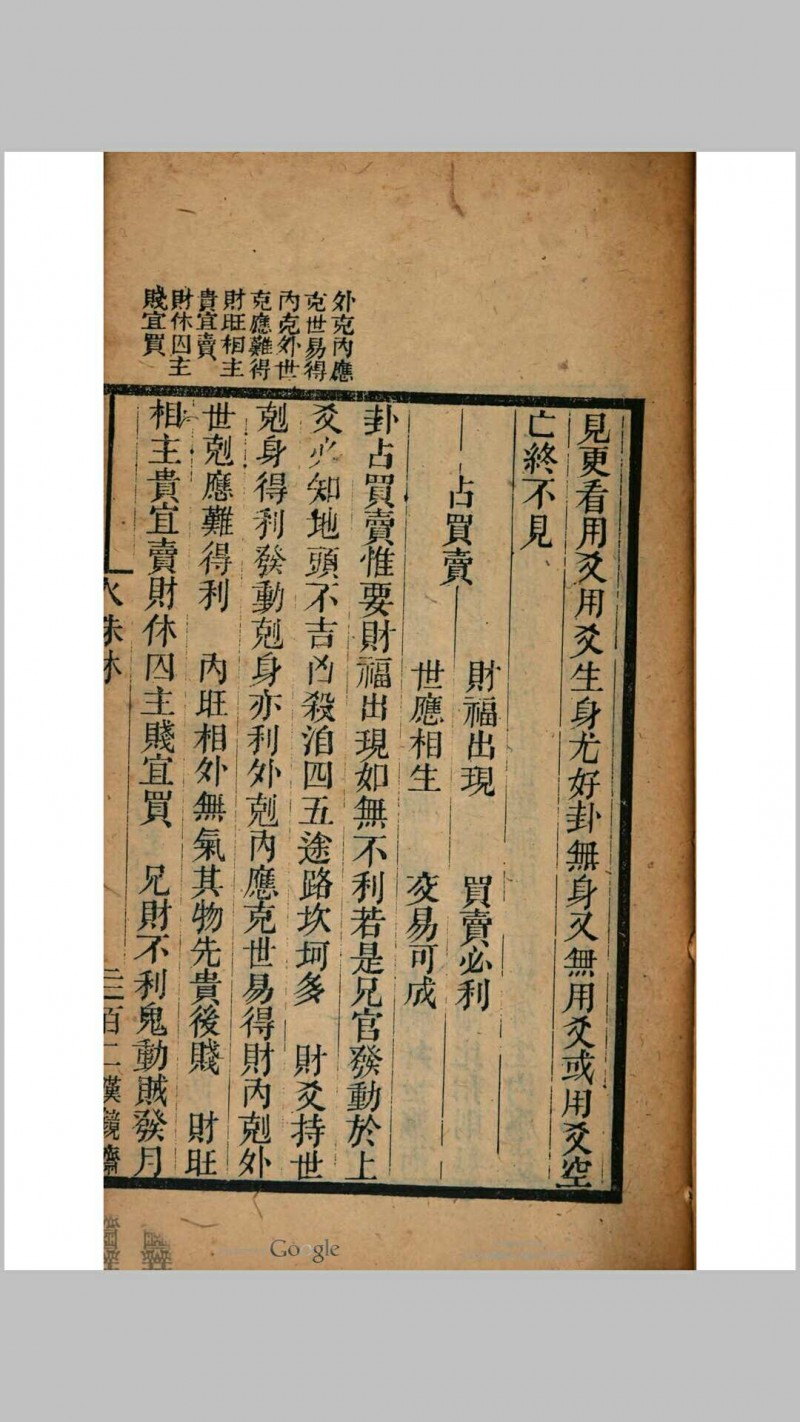 外克內應
克世易得
內克外世
克應難得
財旺相主
貴宜賣
財休囚主
賤宜買
見更看用爻用爻生身尤好卦無身又無用爻或用爻空
亡終不見
占買賣
財福出現 買賣必利
世應相生 交易可成
卦占買賣惟要財福出現如無不利若是兄官發動於上
爻必知地頭不吉凶殺泊四五途路坎坷多 財爻持世
剋身得利發動剋身亦利外剋內應克世易得財內剋外
世剋應難得利 內旺相外無氣其物先貴後賤 財旺
相主貴宜賣財休囚主賤宜買 兄財不利鬼動賊發月
火珠林
百二漢鏡齋
Google